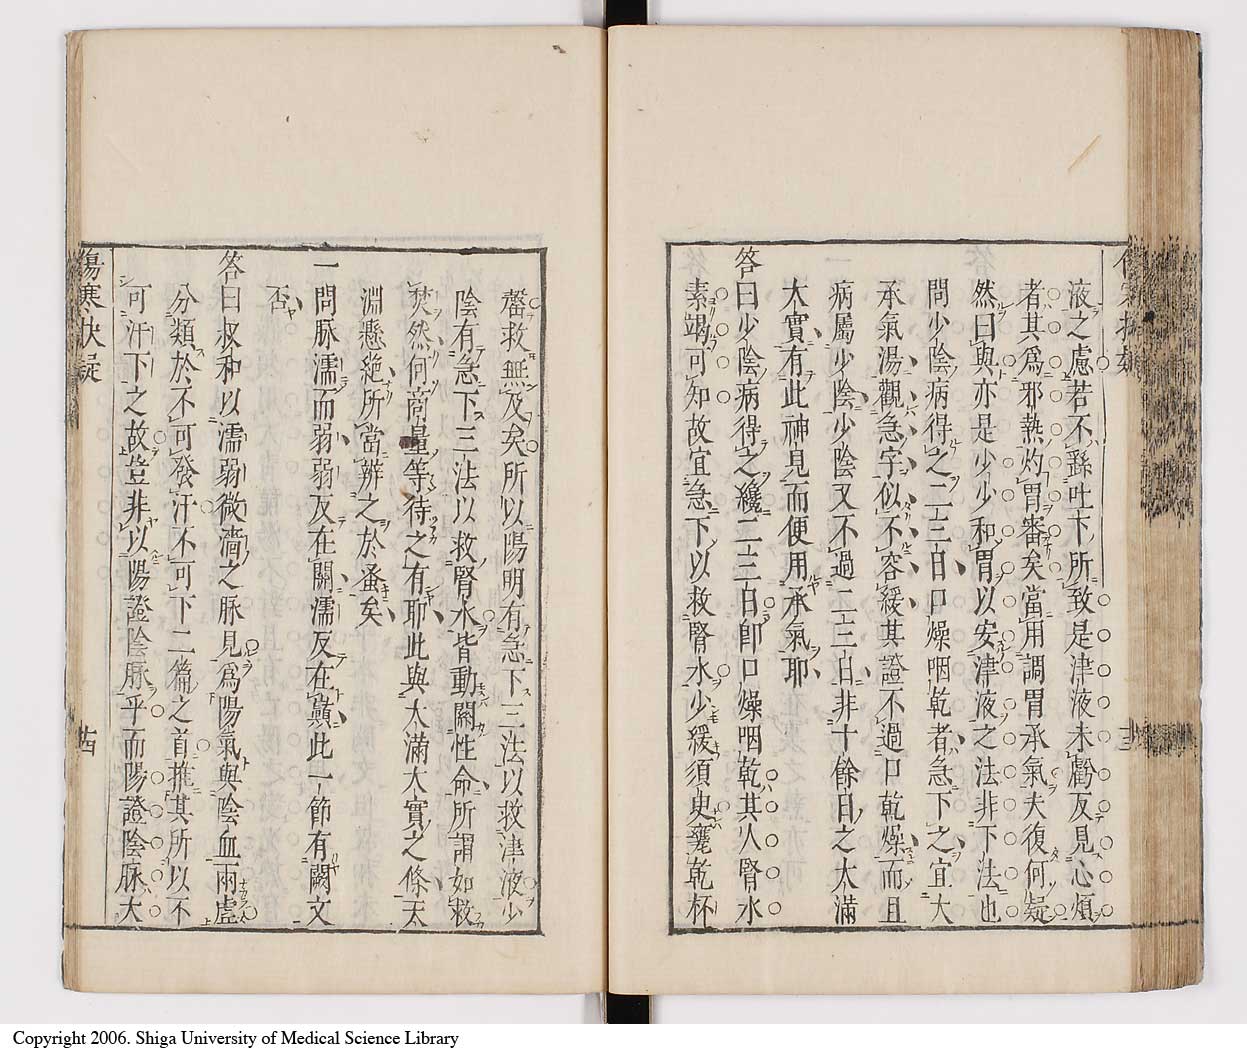 液之慮若不繇吐下所致是津液未虧反見心煩
者其爲邪熱灼胃審矣當用調胃承氣夫復何疑
然曰與亦是少少和胃以安津液之法非下法也
問少陰病得之二三日口燥咽乾者急下之宜大
承氣湯觀急字似不容緩其證不過口乾燥而且
病屬少陰少陰又不過二三日非十餘日之大滿
大實有此神見而便用承氣耶
答曰少陰病得之纔二三日卽口燥咽乾其人腎水
素竭可知故宜急下以救腎水少緩須臾甕乾杯
罄救無及矣所以陽明有急下三法以救津液少
陰有急下三法以救腎水皆動關性命所謂如救
焚然何商量等待之有耶此與大滿大實之條太
淵懸絕所當辨之於蚤矣
一問脉濡而弱弱反在關濡反在巓此一節有闕文
否
答曰叔和以濡弱微濇之脉見爲陽氣與陰血兩虛
分類於不可發汗不可下二篇之首推其所以不
可汗下之故豈非以陽證陰脉乎而陽證陰脉大
傷寒抉疑
十四
Copyright 2006. Shiga University of Medical Science Library